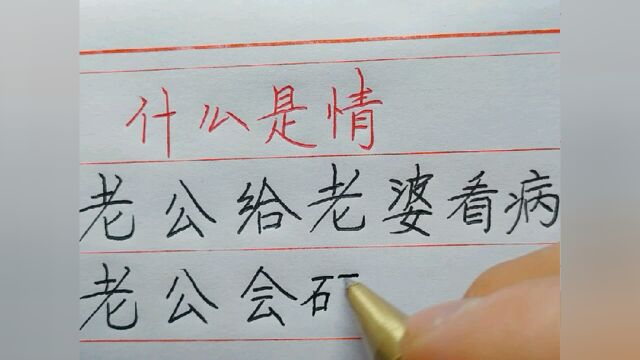 什么是情
老公给老婆看病
老公会